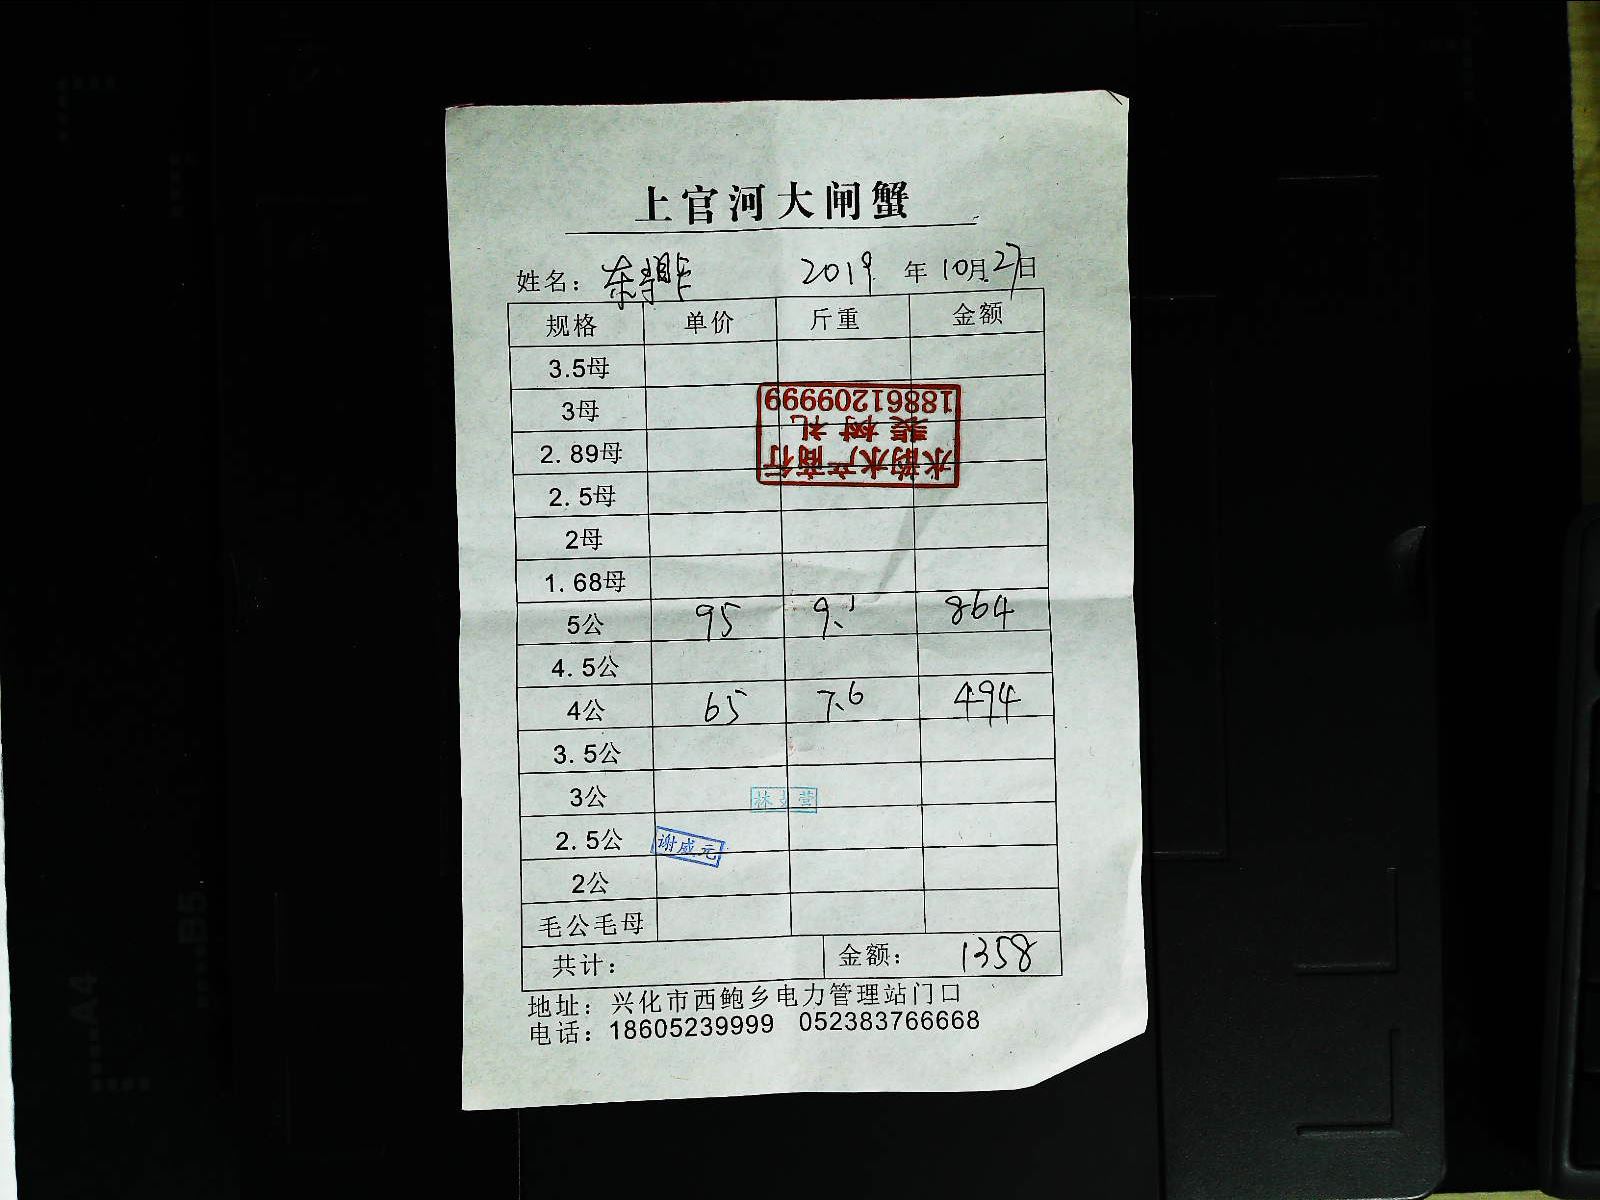 上官河大闸蟹
姓名： 2019 年 10月 27日
规格 单价 斤重 金额
3.5母
3母
2.89母
2.5母
2母
1.68母
5公 95 9.1 864
4.5公
4公 65 7.6 494
3.5公
3公
2.5公
2公
毛公毛母
共计： 金额： 1358
地址：兴化市西鲍乡电力管理站门口
电话：18605239999 052383766668
水韵水产商行
裴树礼
18861209999
林 营
谢咸元